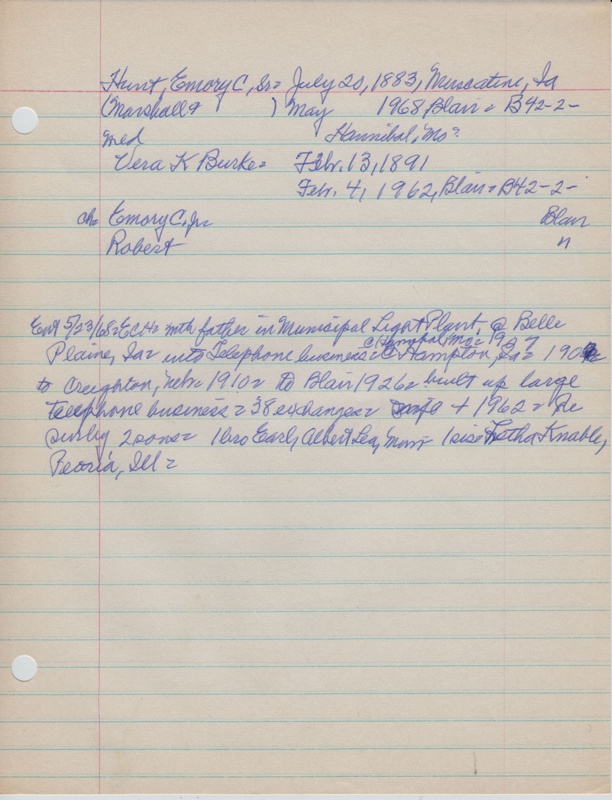 Hunt, Emory C, Sr= July 20, 1883, Muscatine, Ia
(Marshall & ) May 1968, Blair= B42-2-
med Hannibal, Mo?
Vera K Burke= Feb. 13, 1891
Feb. 4, 1962, Blair= B42-2-
ch= Emory C, Jr= Blair
Robert "
Ent 5/23/68= ECH= with father in Municipal Light Plant, @ Belle
@ Hannibal, Mo= 1907
Plaine, Ia= into Telephone business= @ Hampton, Ia= 190
to Creighton, Nebr= 1910= to Blair 1926= built up large
telephone business= 38 exchanges= + 1962=
surby 2 sons= 1 bro Earl, Albert Lea, Minn= 1 sis= Knable,
Peoria, Ill=